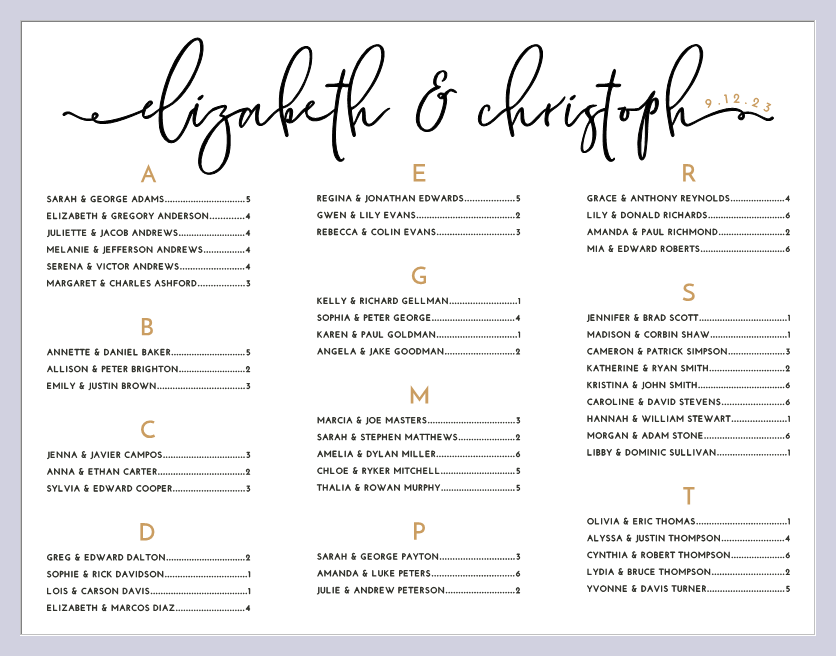 elizabeth & christoph
9.12.23
A
SARAH & GEORGE ADAMS..............................5
ELIZABETH & GREGORY ANDERSON.............4
JULIETTE & JACOB ANDREWS........................4
MELANIE & JEFFERSON ANDREWS...............4
SERENA & VICTOR ANDREWS........................4
MARGARET & CHARLES ASHFORD.................3
B
ANNETTE & DANIEL BAKER...........................5
ALLISON & PETER BRIGHTON........................2
EMILY & JUSTIN BROWN.................................3
C
JENNA & JAVIER CAMPOS..............................3
ANNA & ETHAN CARTER................................2
SYLVIA & EDWARD COOPER...........................3
D
GREG & EDWARD DALTON..............................2
SOPHIE & RICK DAVIDSON..............................1
LOIS & CARSON DAVIS....................................1
ELIZABETH & MARCOS DIAZ.........................4
E
REGINA & JONATHAN EDWARDS..................5
GWEN & LILY EVANS.....................................2
REBECCA & COLIN EVANS..............................3
G
KELLY & RICHARD GELLMAN.........................1
SOPHIA & PETER GEORGE...............................4
KAREN & PAUL GOLDMAN..............................1
ANGELA & JAKE GOODMAN...........................2
M
MARCIA & JOE MASTERS.................................3
SARAH & STEPHEN MATTHEWS.....................2
AMELIA & DYLAN MILLER..............................6
CHLOE & RYKER MITCHELL...........................5
THALIA & ROWAN MURPHY............................5
P
SARAH & GEORGE PAYTON.............................3
AMANDA & LUKE PETERS...............................6
JULIE & ANDREW PETERSON..........................2
R
GRACE & ANTHONY REYNOLDS....................4
LILY & DONALD RICHARDS............................6
AMANDA & PAUL RICHMOND.......................2
MIA & EDWARD ROBERTS...............................6
S
JENNIFER & BRAD SCOTT................................1
MADISON & CORBIN SHAW............................1
CAMERON & PATRICK SIMPSON....................3
KATHERINE & RYAN SMITH...........................2
KRISTINA & JOHN SMITH...............................6
CAROLINE & DAVID STEVENS.......................6
HANNAH & WILLIAM STEWART....................1
MORGAN & ADAM STONE..............................6
LIBBY & DOMINIC SULLIVAN.........................1
T
OLIVIA & ERIC THOMAS.................................1
ALYSSA & JUSTIN THOMPSON.......................4
CYNTHIA & ROBERT THOMPSON...................6
LYDIA & BRUCE THOMPSON..........................2
YVONNE & DAVIS TURNER............................5